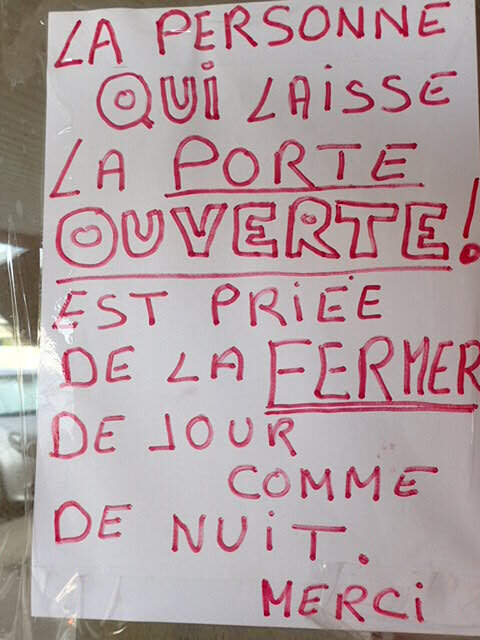 LA PERSONNE
QUi LAiSSE
LA PORTE
OUVERTE!
EST PRiEE
DE LA FERMER
DE JOUR
COMME
DE NUiT.
MERCi